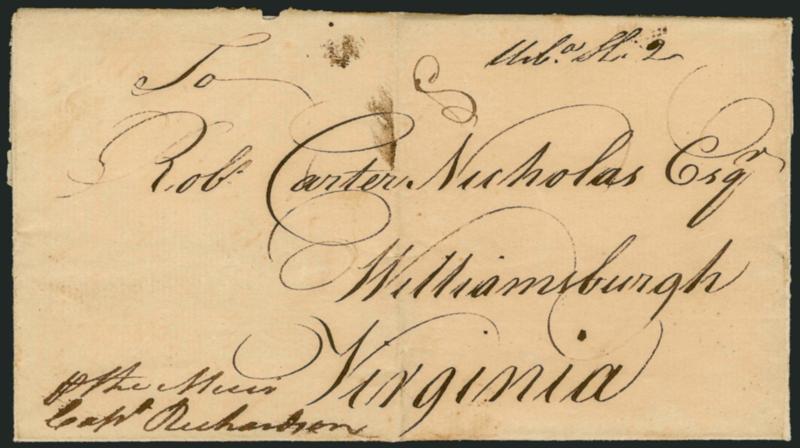 To
Robt. Carter Nicholas Esqr
Williamsburgh
Virginia
⅌ the Muir
Capt Richardson